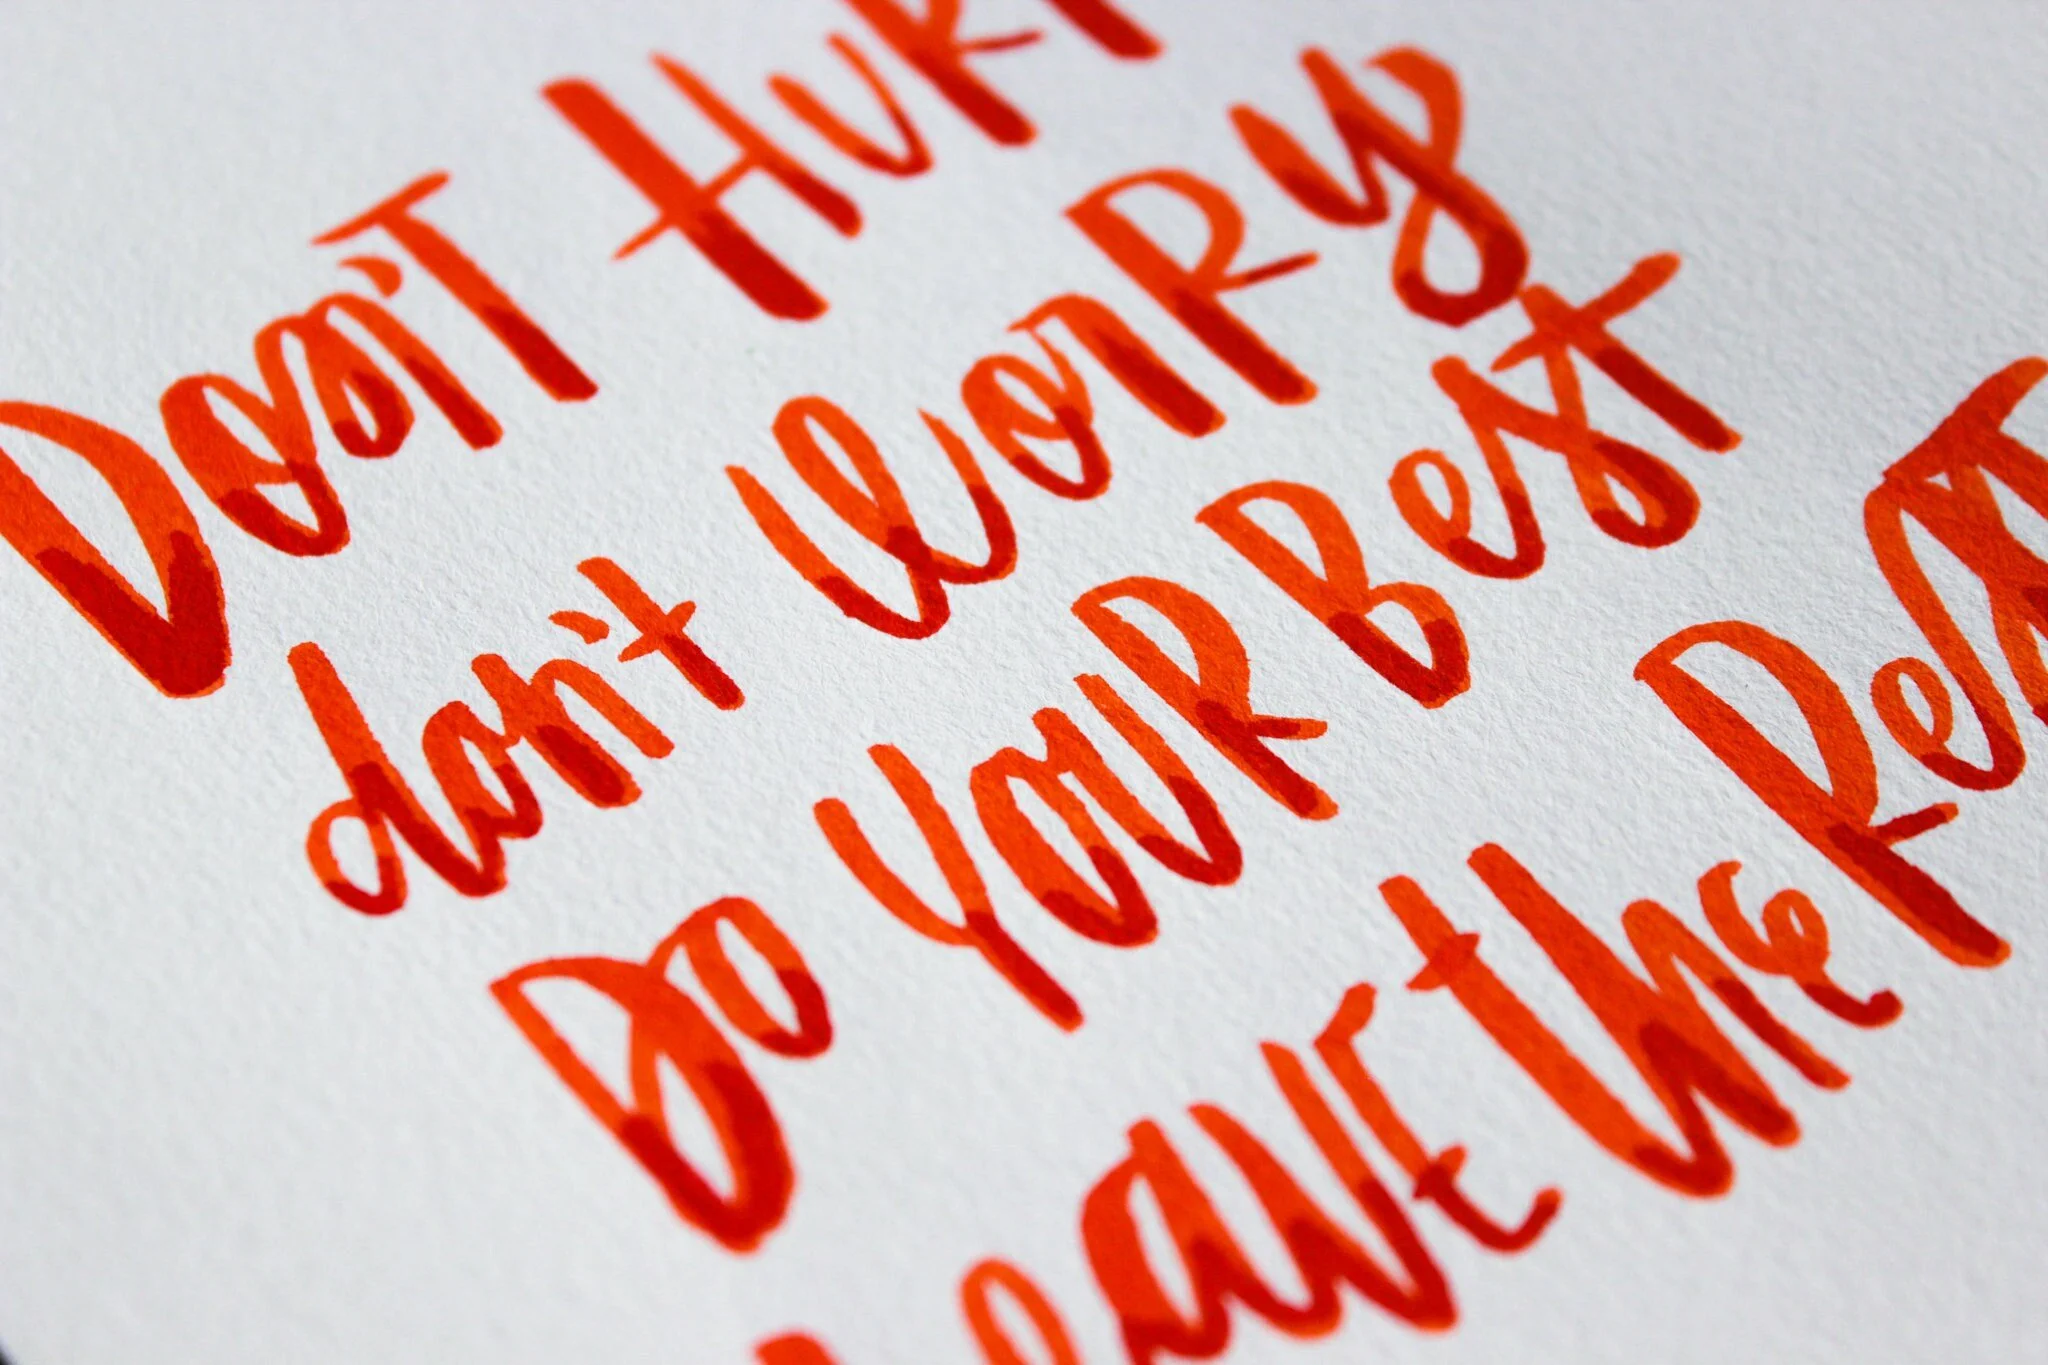 Don't Hur
don't Worry
Do Your Best
Leave the Rest